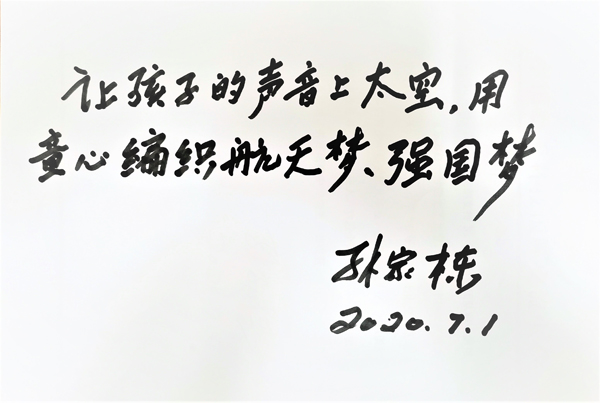 让孩子的声音上太空,用
童心编织航天梦、强国梦
孙宗栋
2020.7.1